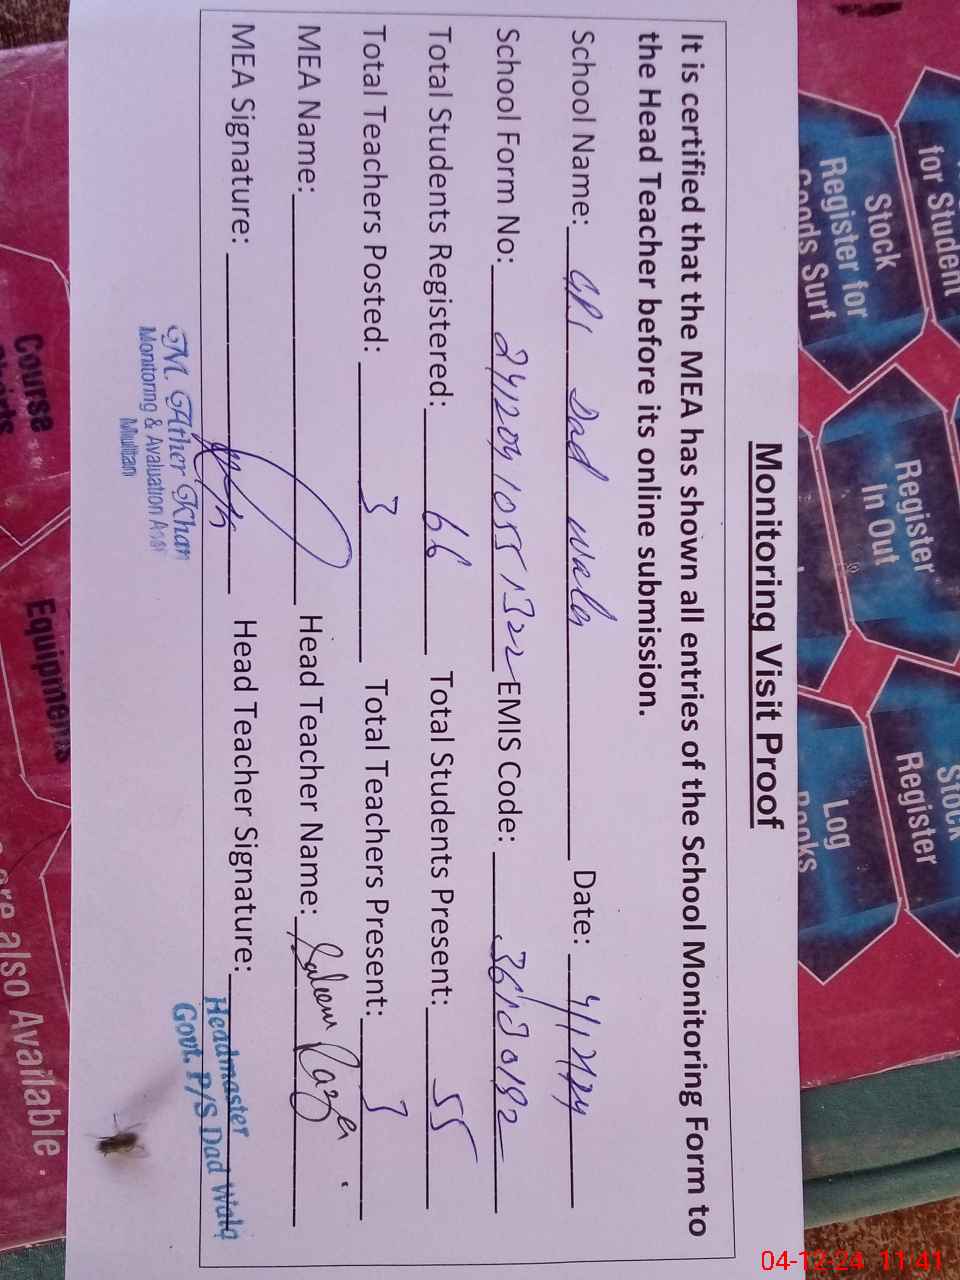 Monitoring Visit Proof
It is certified that the MEA has shown all entries of the School Monitoring Form to
the Head Teacher before its online submission.
School Name: GPS Dad Wala Date: 4/12/24
School Form No: 24120410551322 EMIS Code: 36130192
Total Students Registered: 66 Total Students Present: 55
Total Teachers Posted: 3 Total Teachers Present: 3
MEA Name: Head Teacher Name: Saleem Raza
MEA Signature: Head Teacher Signature:
M. Ather Khan
Monitoring & Evaluation Asst
Multan
Headmaster
Govt. P/S Dad Wala
for Student
Stock
Register for
Goods Surf
Register
In Out
Stock
Register
Log
Books
Course
Charts
Equipments
are also Available.
04-12-24 11:41